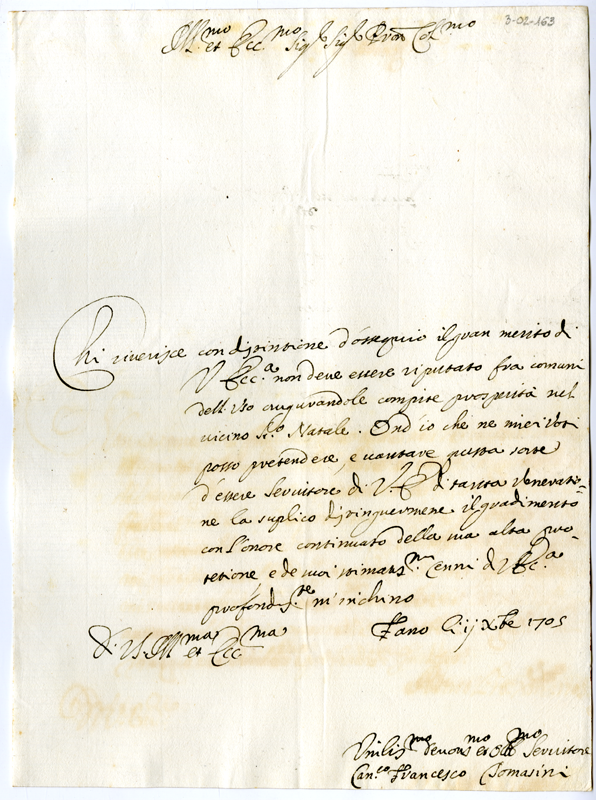 3-02-163
Ill.mo et Ecc.mo Sig.r Sig.r Pron Col.mo
Chi riverisce con distintione d'ossequio il gran merito di
V. Ecc.a non deve essere riputato fra comuni
dell'uso augurandole compite prosperità nel
vicino S.to Natale. Ond'io che ne miei voti
posso pretendere, e vantare giusta sorte
d'essere servitore di V. E. di tanta veneratio-
ne la suplico distinguermene il gradimento
con l'onore continuato della sua alta pro-
tetione e de suoi stimatiss.mi cenni di V. Ecc.a
profondis.te m'inchino
Di V. S. Ill.ma et Ecc.ma
Fano li ij Xbe 1705
Umilis.mo devotis.mo et obb.mo Servitore
Can.co Francesco Tomasini